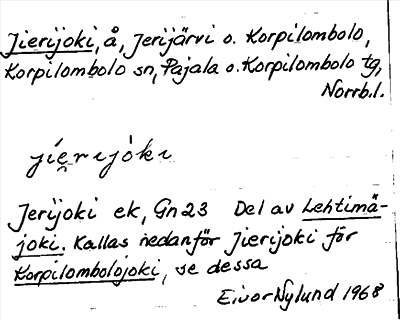 Jierijoki, å, Jerijärvi o. Korpilombolo,
Korpilombolo sn, Pajala o. Korpilombolo tg,
Norrb.l.
jie̯rijóki
Jerijoki ek, Gn23 Del av Lehtimä-
joki. Kallas nedanför Jierijoki för
Korpilombolojoki, se dessa
Eivor Nylund 1968